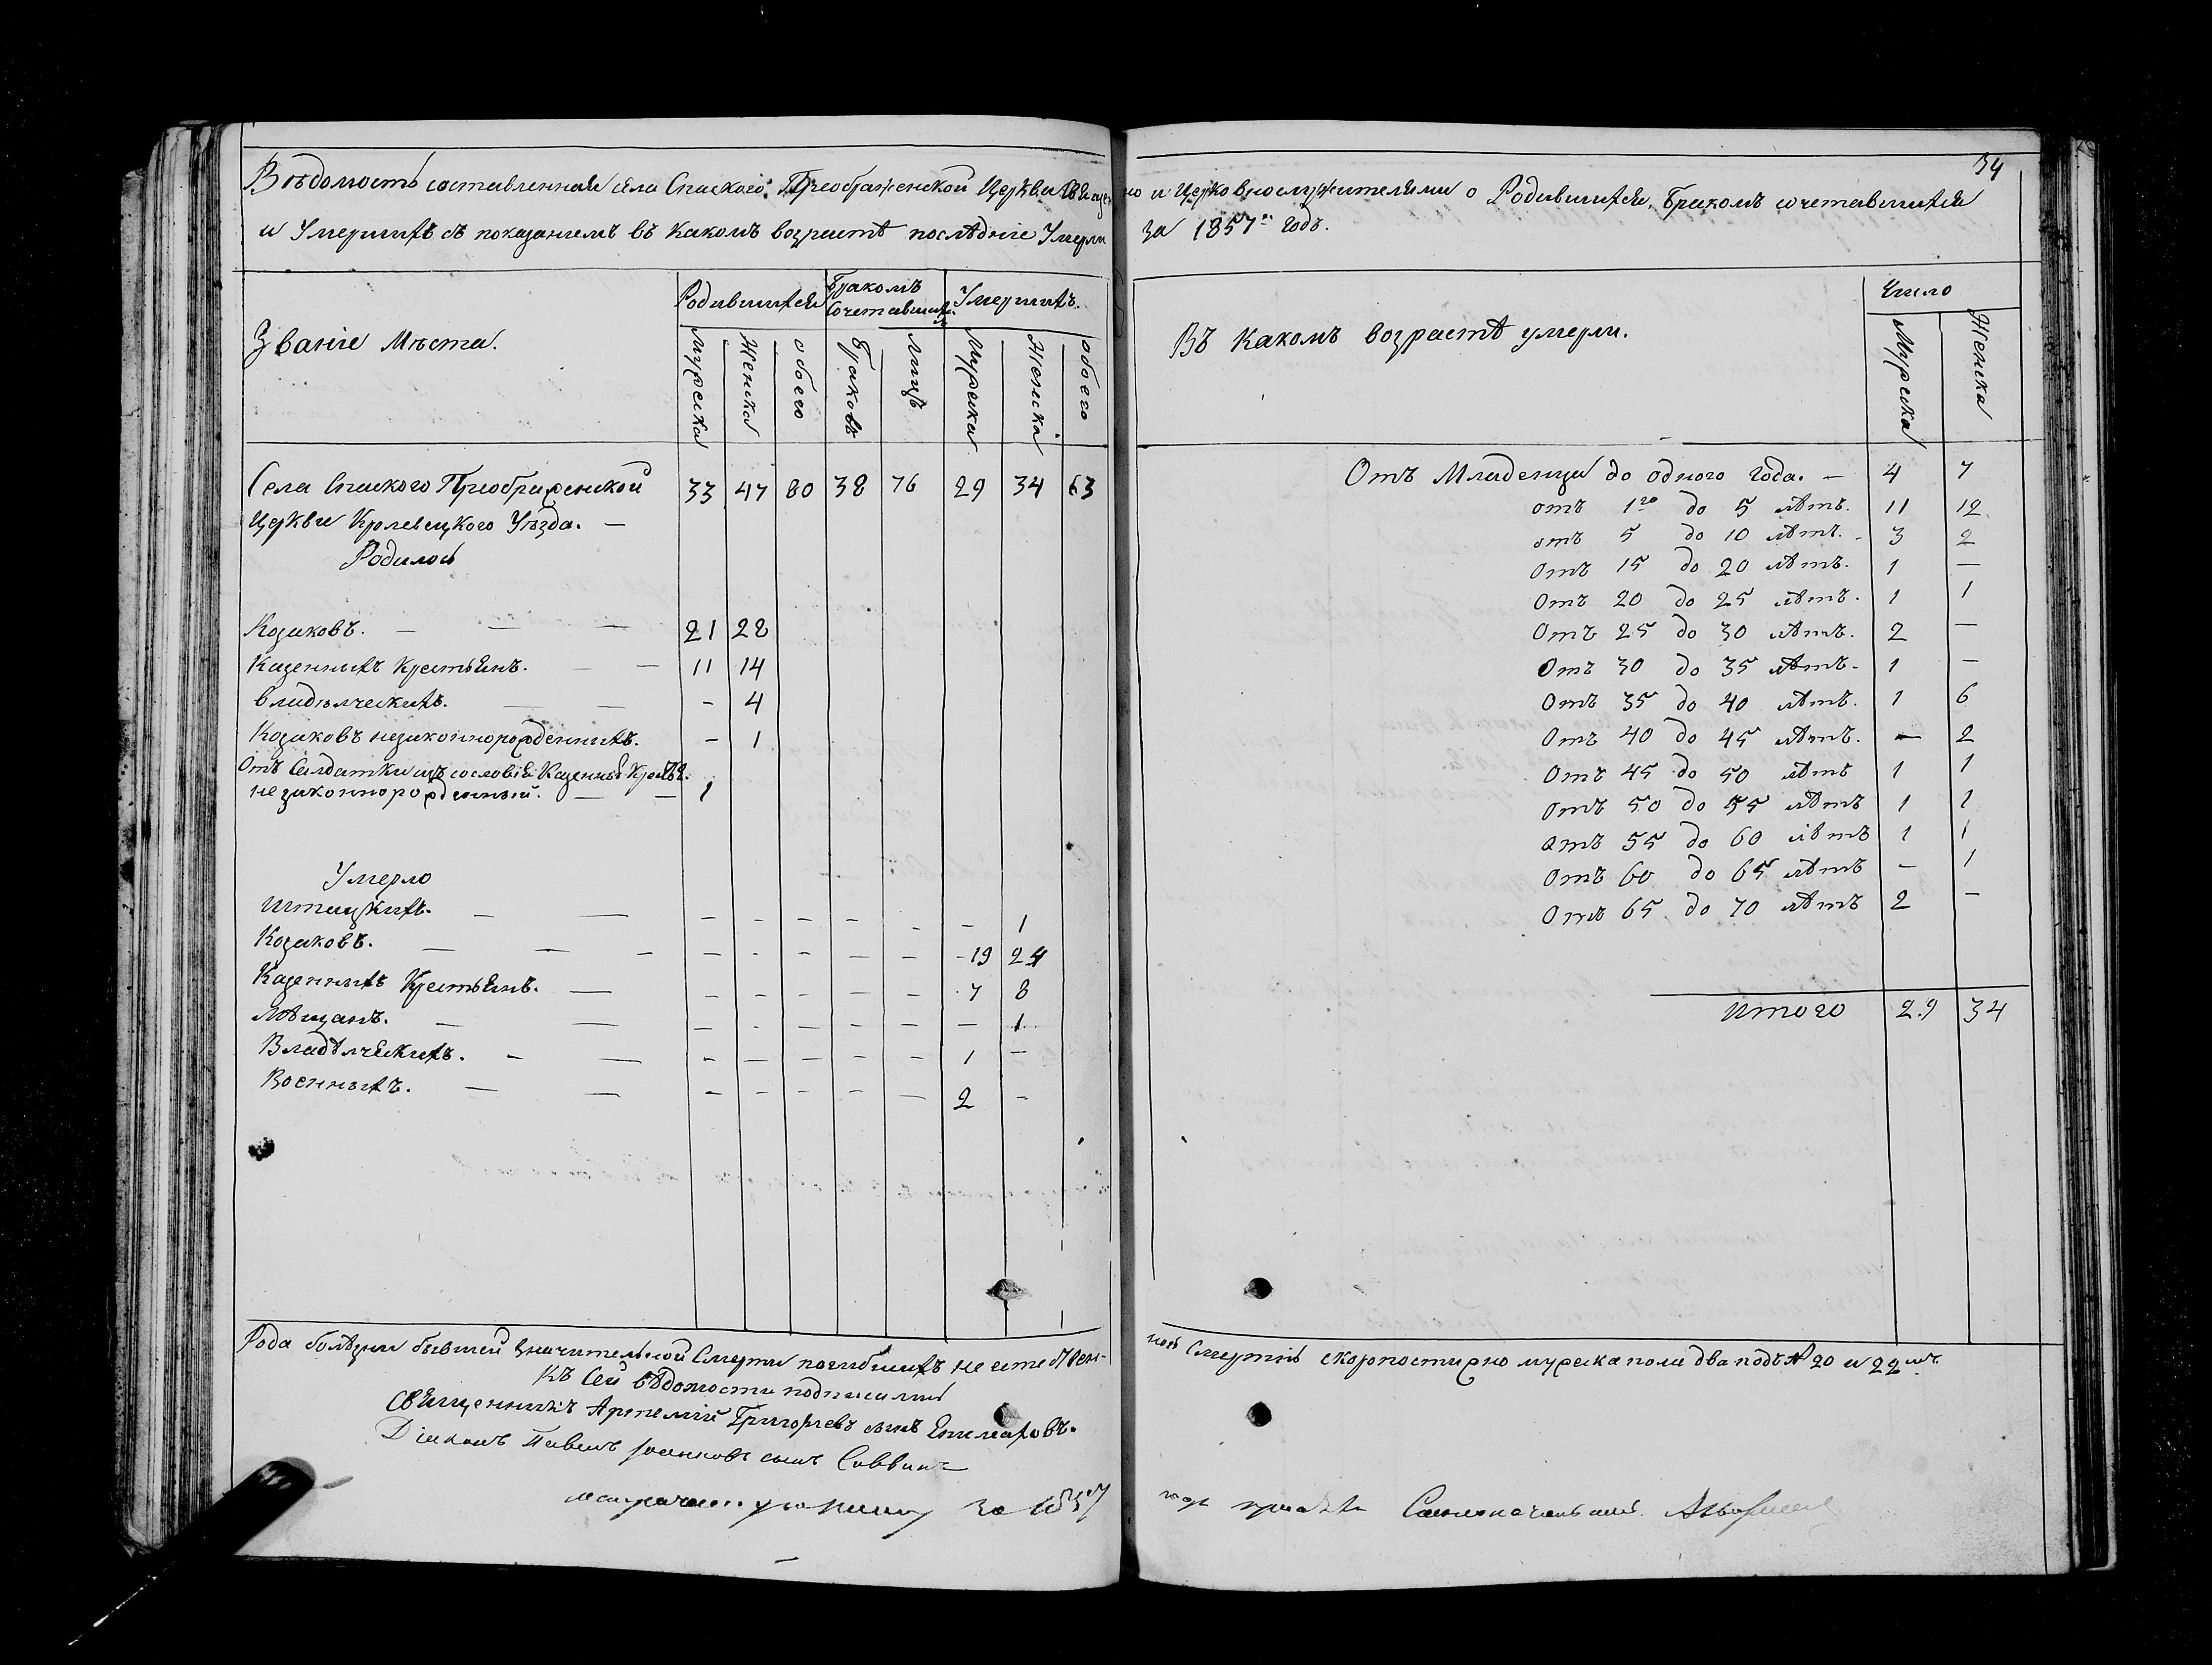 34
Вѣдомость составленная села Спаского Преображенской Церкви Священно и Церковнослужителями о Родившихся, Бракомъ сочетавшихся
и Умершихъ съ показаніемъ въ какомъ возрастѣ послѣдніе Умерли за 1857й годъ.
Званіе Мѣста.
Родившихся
Бракомъ сочетавшихся
Умершихъ.
Мужеска
Женска
обоего
Браковъ
Лицъ
Мужеска
Женска
обоего
Села Спаского Преображенской 33 47 80 38 76 29 34 63
Церкви Кролевецкого Уѣзда. —
Родилось
Козаковъ. — — — 21 28
Казенныхъ Крестьянъ. — — 11 14
владѣлческихъ. — — - 4
Козаковъ незаконнорожденныхъ. - 1
Отъ Салдатки изъ сословія Казенныхъ Крестья.
незаконнорожденный. — — 1
Умерло
Штатскихъ. — — - - - - - - 1
Козаковъ. — — — - - - - - 19 24
Казенныхъ Крестьянъ. — - - - - - 7 8
Мѣщанъ. — — - - - - - - 1
Владѣлческихъ. - — - - - - - 1 -
Военныхъ. — — - - - - - 2 -
Рода болѣзни бывшей значительной Смерти погибшихъ не
Къ Сей вѣдомости подписались
Священникъ Артемій Григорьевъ сынъ
Діаконъ Павелъ сынъ Саввичъ
за 1857
Въ Какомъ возрастѣ умерли.
Число
Мужеска
Женска
Отъ Младенца до одного года. — 4 7
отъ 1го до 5 лѣтъ. 11 12
отъ 5 до 10 лѣтъ. - 3 2
Отъ 15 до 20 лѣтъ. 1 —
Отъ 20 до 25 лѣтъ. 1 1
Отъ 25 до 30 лѣтъ. 2 —
Отъ 30 до 35 лѣтъ. 1 —
Отъ 35 до 40 лѣтъ. 1 6
Отъ 40 до 45 лѣтъ. — 2
Отъ 45 до 50 лѣтъ 1 1
Отъ 50 до 55 лѣтъ 1 1
Отъ 55 до 60 лѣтъ 1 1
Отъ 60 до 65 лѣтъ — 1
Отъ 65 до 70 лѣтъ 2 —
Итого 29 34
скоропостижно мужеска пола два подъ № 20 и 22мъ.